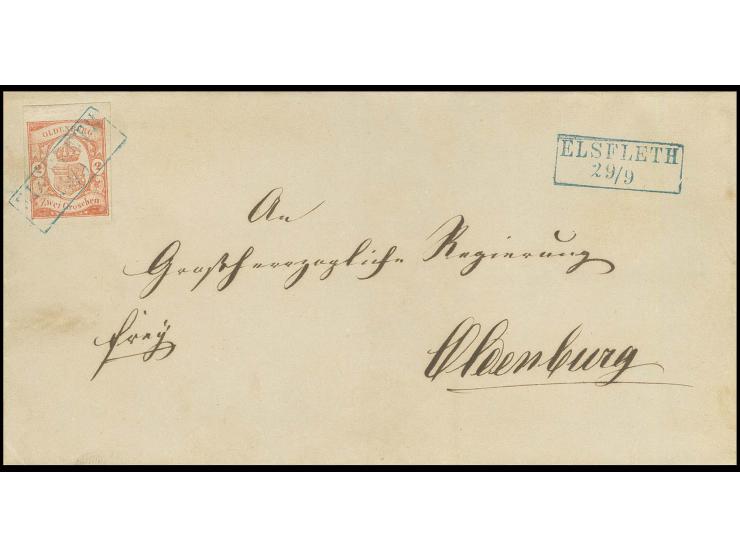 OLDENBURG
2 2
Zwei Groschen
ELSFLETH
29/9
An
Großherzogliche Regierung
frey
Oldenburg